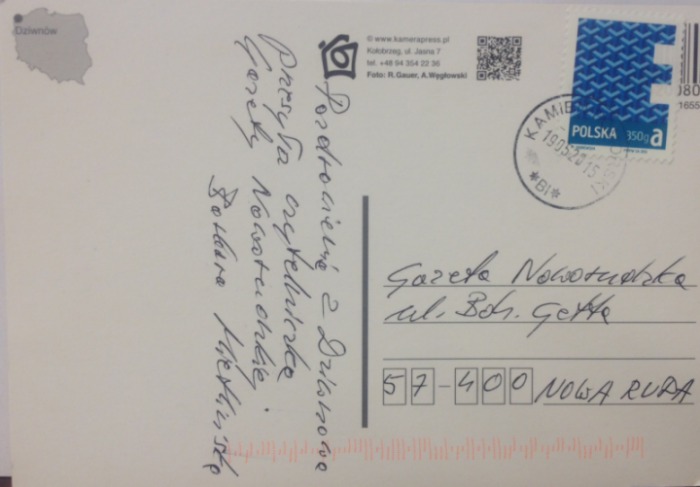 Dziwnów
© www.kamerapress.pl
Kołobrzeg, ul. Jasna 7
tel. +48 94 354 22 36
Foto: R.Gauer, A.Węgłowski
POLSKA 350g a
19052015
*BI*
080
1655
Pozdrowienia z Dziwnowa
przesyła czytelniczka
Gazety Noworudzkiej.
Gazeta Noworudzka
ul. Boh. Getta
57-400 NOWA RUDA